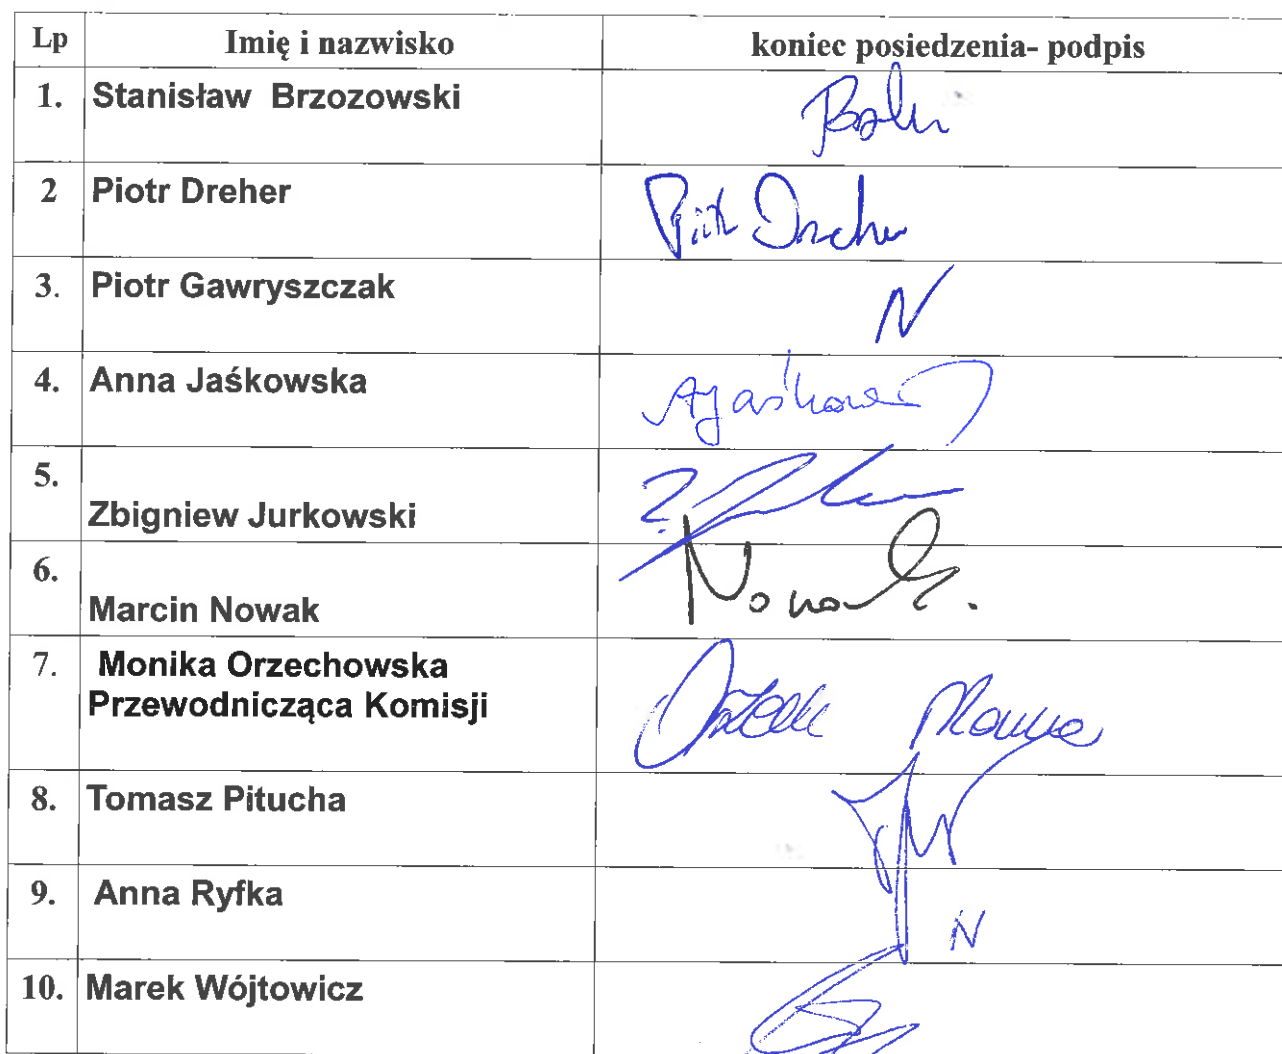 Lp Imię i nazwisko koniec posiedzenia- podpis
1. Stanisław Brzozowski
2 Piotr Dreher Piotr Dreher
3. Piotr Gawryszczak N
4. Anna Jaśkowska AJaśkowska
5.
Zbigniew Jurkowski
6.
Marcin Nowak Nowak.
7. Monika Orzechowska
Przewodnicząca Komisji
8. Tomasz Pitucha
9. Anna Ryfka N
10. Marek Wójtowicz